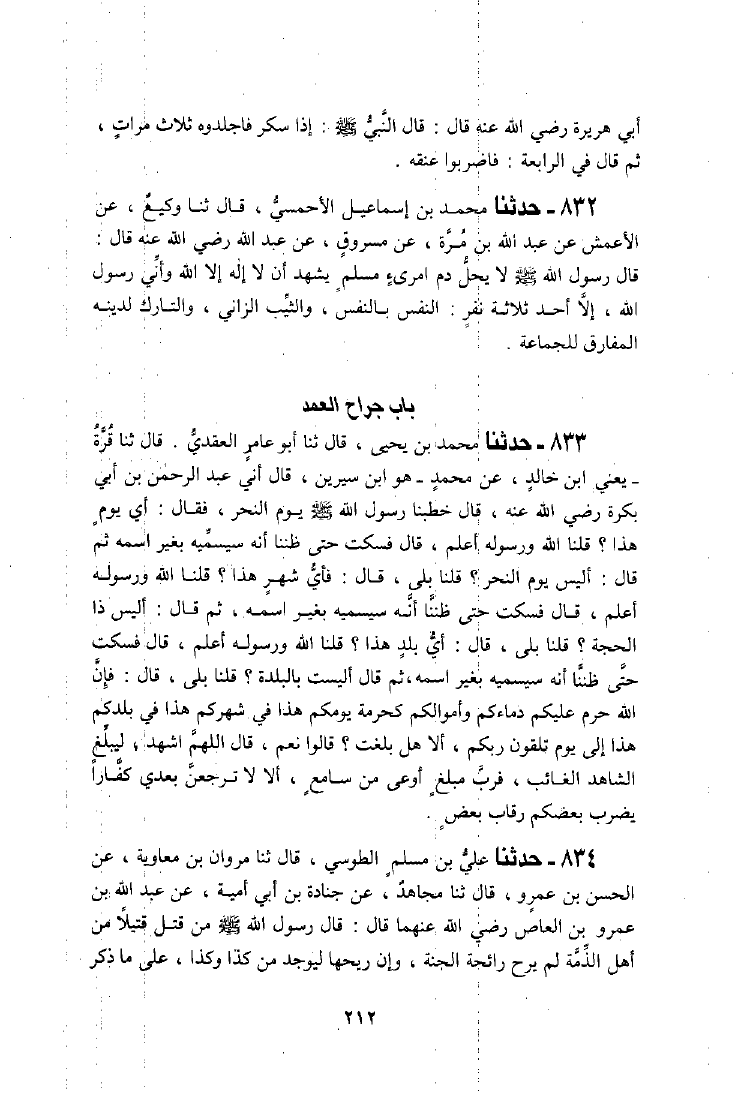 أبي هريرة رضي الله عنه قال : قال النَّبيُّ ﷺ : إذا سكر فاجلدوه ثلاث مراتٍ ،
ثم قال في الرابعة : فاضربوا عنقه .
٨٣٢ ـ حدثنا محمد بن إسماعيل الأحمسيُّ ، قال ثنا وكيعٌ ، عن
الأعمش عن عبد الله بن مُرَّة ، عن مسروقٍ ، عن عبد الله رضي الله عنه قال :
قال رسول الله ﷺ لا يحلُّ دم امرىءٍ مسلمٍ يشهد أن لا إله إلا الله وأنِّي رسول
الله ، إلَّا أحد ثلاثة نفرٍ : النفس بالنفس ، والثيِّب الزاني ، والتارك لدينه
المفارق للجماعة .
باب جراح العمد
٨٣٣ ـ حدثنا محمد بن يحيى ، قال ثنا أبو عامرٍ العقديُّ . قال ثنا قُرَّةُ
ـ يعني ابن خالدٍ ، عن محمدٍ ـ هو ابن سيرين ، قال أني عبد الرحمٰن بن أبي
بكرة رضي الله عنه ، قال خطبنا رسول الله ﷺ يوم النحر ، فقال : أي يومٍ
هذا ؟ قلنا الله ورسوله أعلم ، قال فسكت حتى ظننا أنه سيسمِّيه بغير اسمه ثم
قال : أليس يوم النحر ؟ قلنا بلى ، قال : فأيُّ شهرٍ هذا ؟ قلنا الله ورسوله
أعلم ، قال فسكت حتى ظننَّا أنَّه سيسميه بغير اسمه ، ثم قال : أليس ذا
الحجة ؟ قلنا بلى ، قال : أيُّ بلدٍ هذا ؟ قلنا الله ورسوله أعلم ، قال فسكت
حتَّى ظننَّا أنه سيسميه بغير اسمه،ثم قال أليست بالبلدة ؟ قلنا بلى ، قال : فإنَّ
الله حرم عليكم دماءكم وأموالكم كحرمة يومكم هذا في شهركم هذا في بلدكم
هذا إلى يوم تلقون ربكم ، ألا هل بلغت ؟ قالوا نعم ، قال اللهمَّ اشهد ، ليبلِّغ
الشاهد الغائب ، فربَّ مبلغٍ أوعى من سامعٍ ، ألا لا ترجعنَّ بعدي كفَّاراً
يضرب بعضكم رقاب بعضٍ .
٨٣٤ ـ حدثنا عليُّ بن مسلمٍ الطوسي ، قال ثنا مروان بن معاوية ، عن
الحسن بن عمروٍ ، قال ثنا مجاهدٌ ، عن جنادة بن أبي أمية ، عن عبد الله بن
عمرو بن العاص رضي الله عنهما قال : قال رسول الله ﷺ من قتل قتيلًا من
أهل الذِّمَّة لم يرح رائحة الجنة ، وإن ريحها ليوجد من كذا وكذا ، على ما ذكر
٢١٢